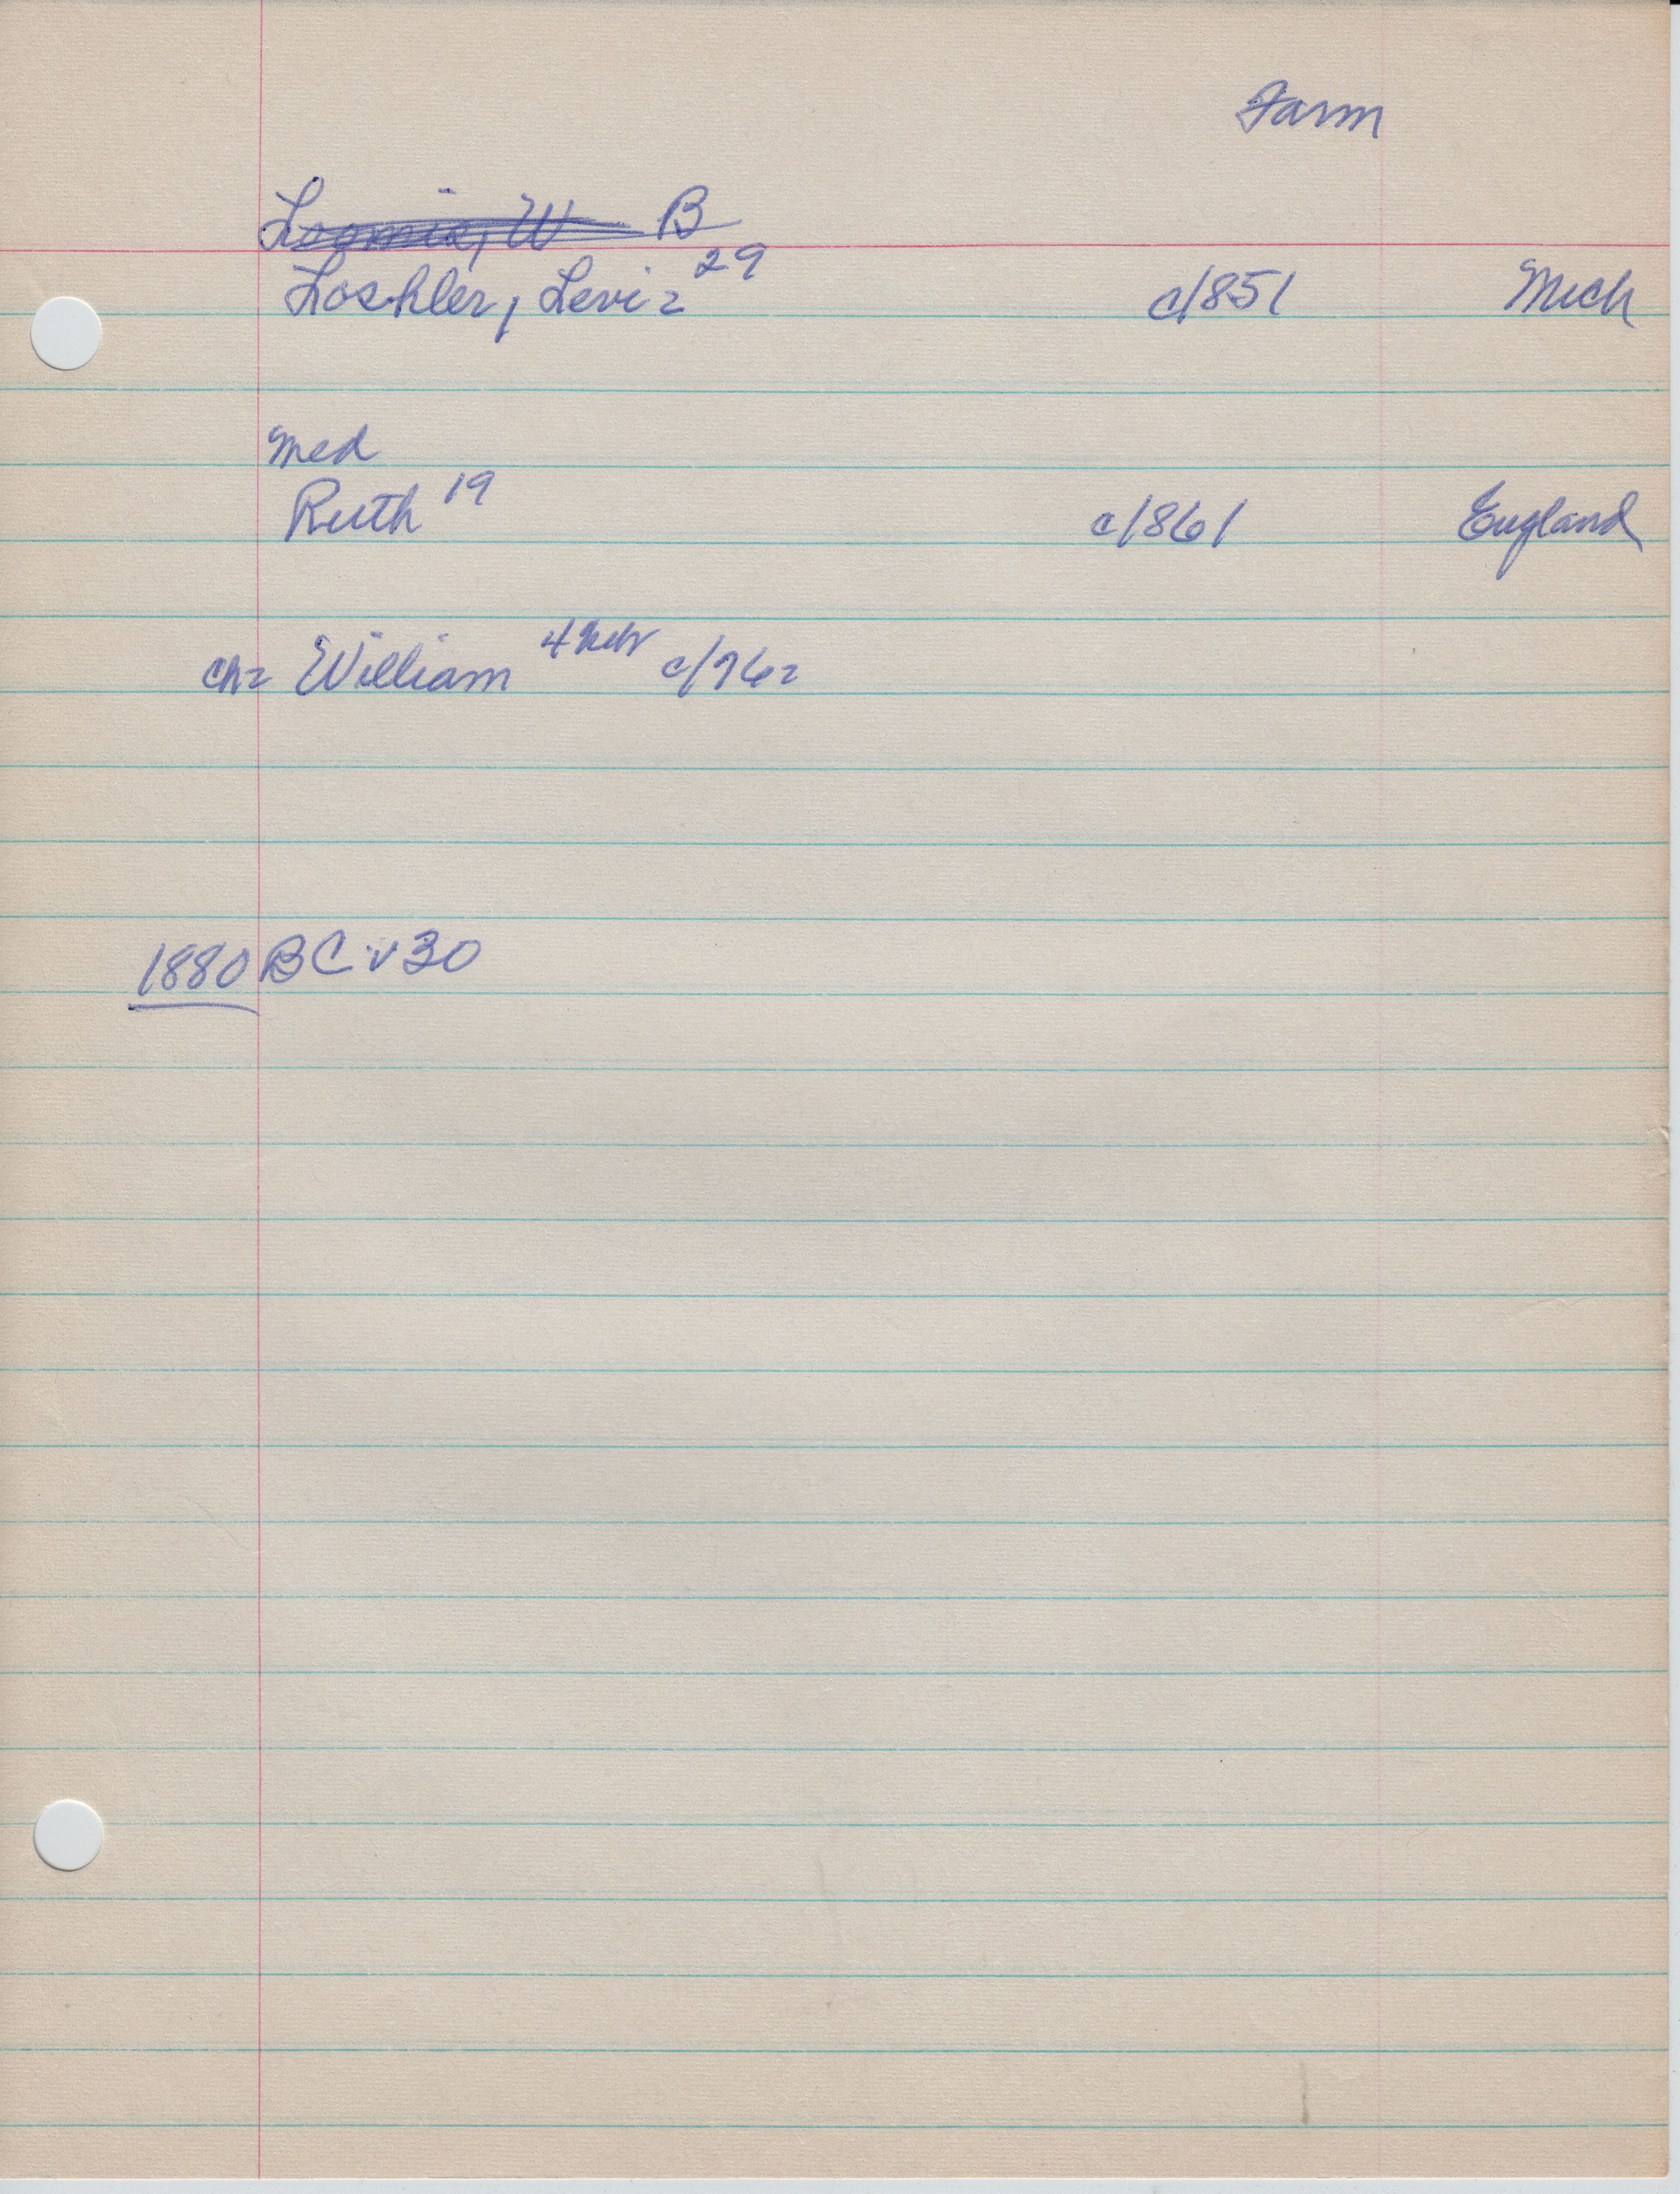 Farm
Loomis, W B
Loshler, Levi = 29 c1851 Mich
Med
Ruth 19 c1861 England
ch = William 4 Neb c/76 =
1880 BC v30